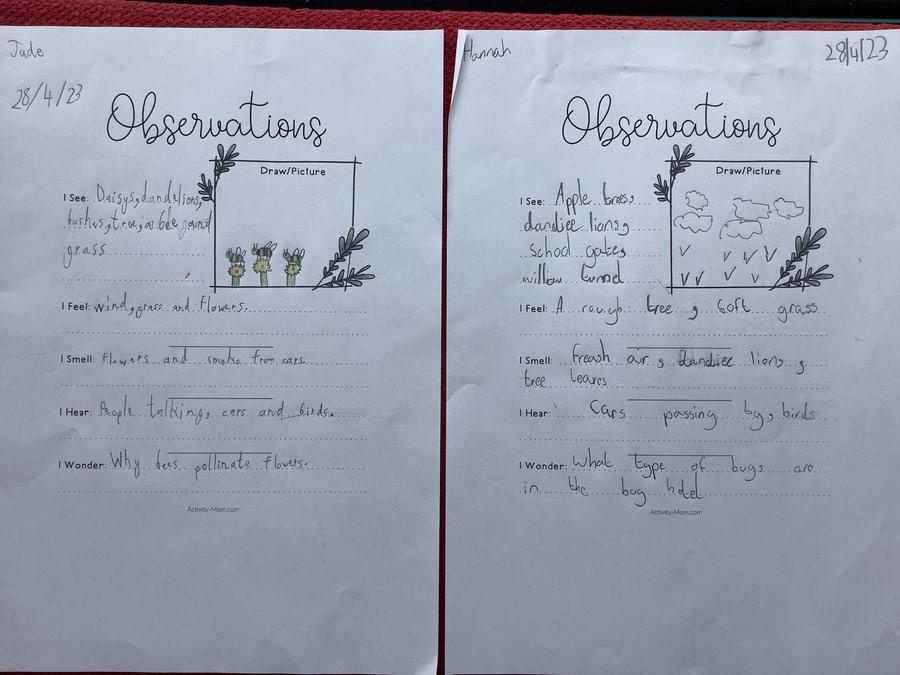 Jade
28/4/23
Observations
Draw/Picture
I See: Daisys, dandelions,
bushes, tree, a bee, and
grass.
I Feel: wind, grass and flowers.
I Smell: Flowers and smoke from cars.
I Hear: People talking, cars and birds.
I Wonder: Why bees pollinate flowers.
Activity-Mom.com
Hannah
28/4/23
Observations
Draw/Picture
I See: Apple trees,
dandiee lions,
school gates,
willow tunnel
I Feel: A rough tree, soft grass
I Smell: freash air, dandiee lions,
tree leaves
I Hear: Cars passing by, birds
I Wonder: What type of bugs are
in the bug hotel
Activity-Mom.com